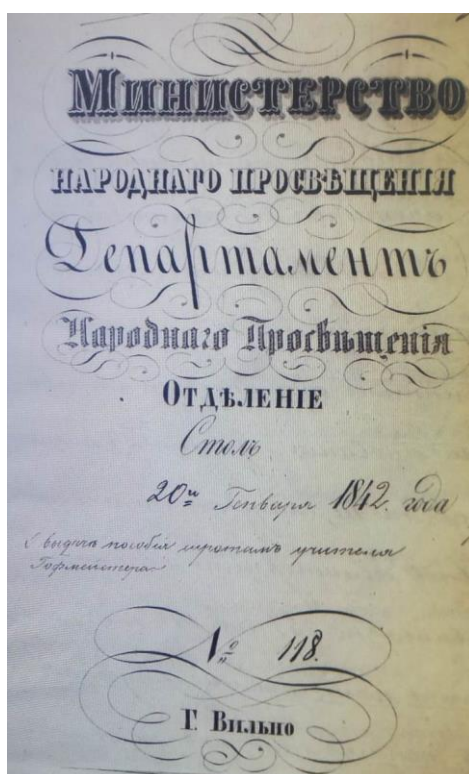 Министерство
народнаго просвѣщенія
Департаментъ
Народнаго Просвѣщенія
Отдѣленіе
Столъ
20го Генваря 1842. года
О выдачѣ пособія сиротамъ учителя
Гофмейстера
№ 118.
Г. Вильно